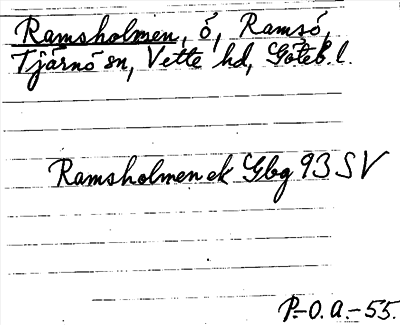 Ramsholmen, ö, Ramsö,
Tjärnö sn, Vette hd, Göteb. l.
Ramsholmen ek Gbg 93 SV
P.-O. A. - 55.